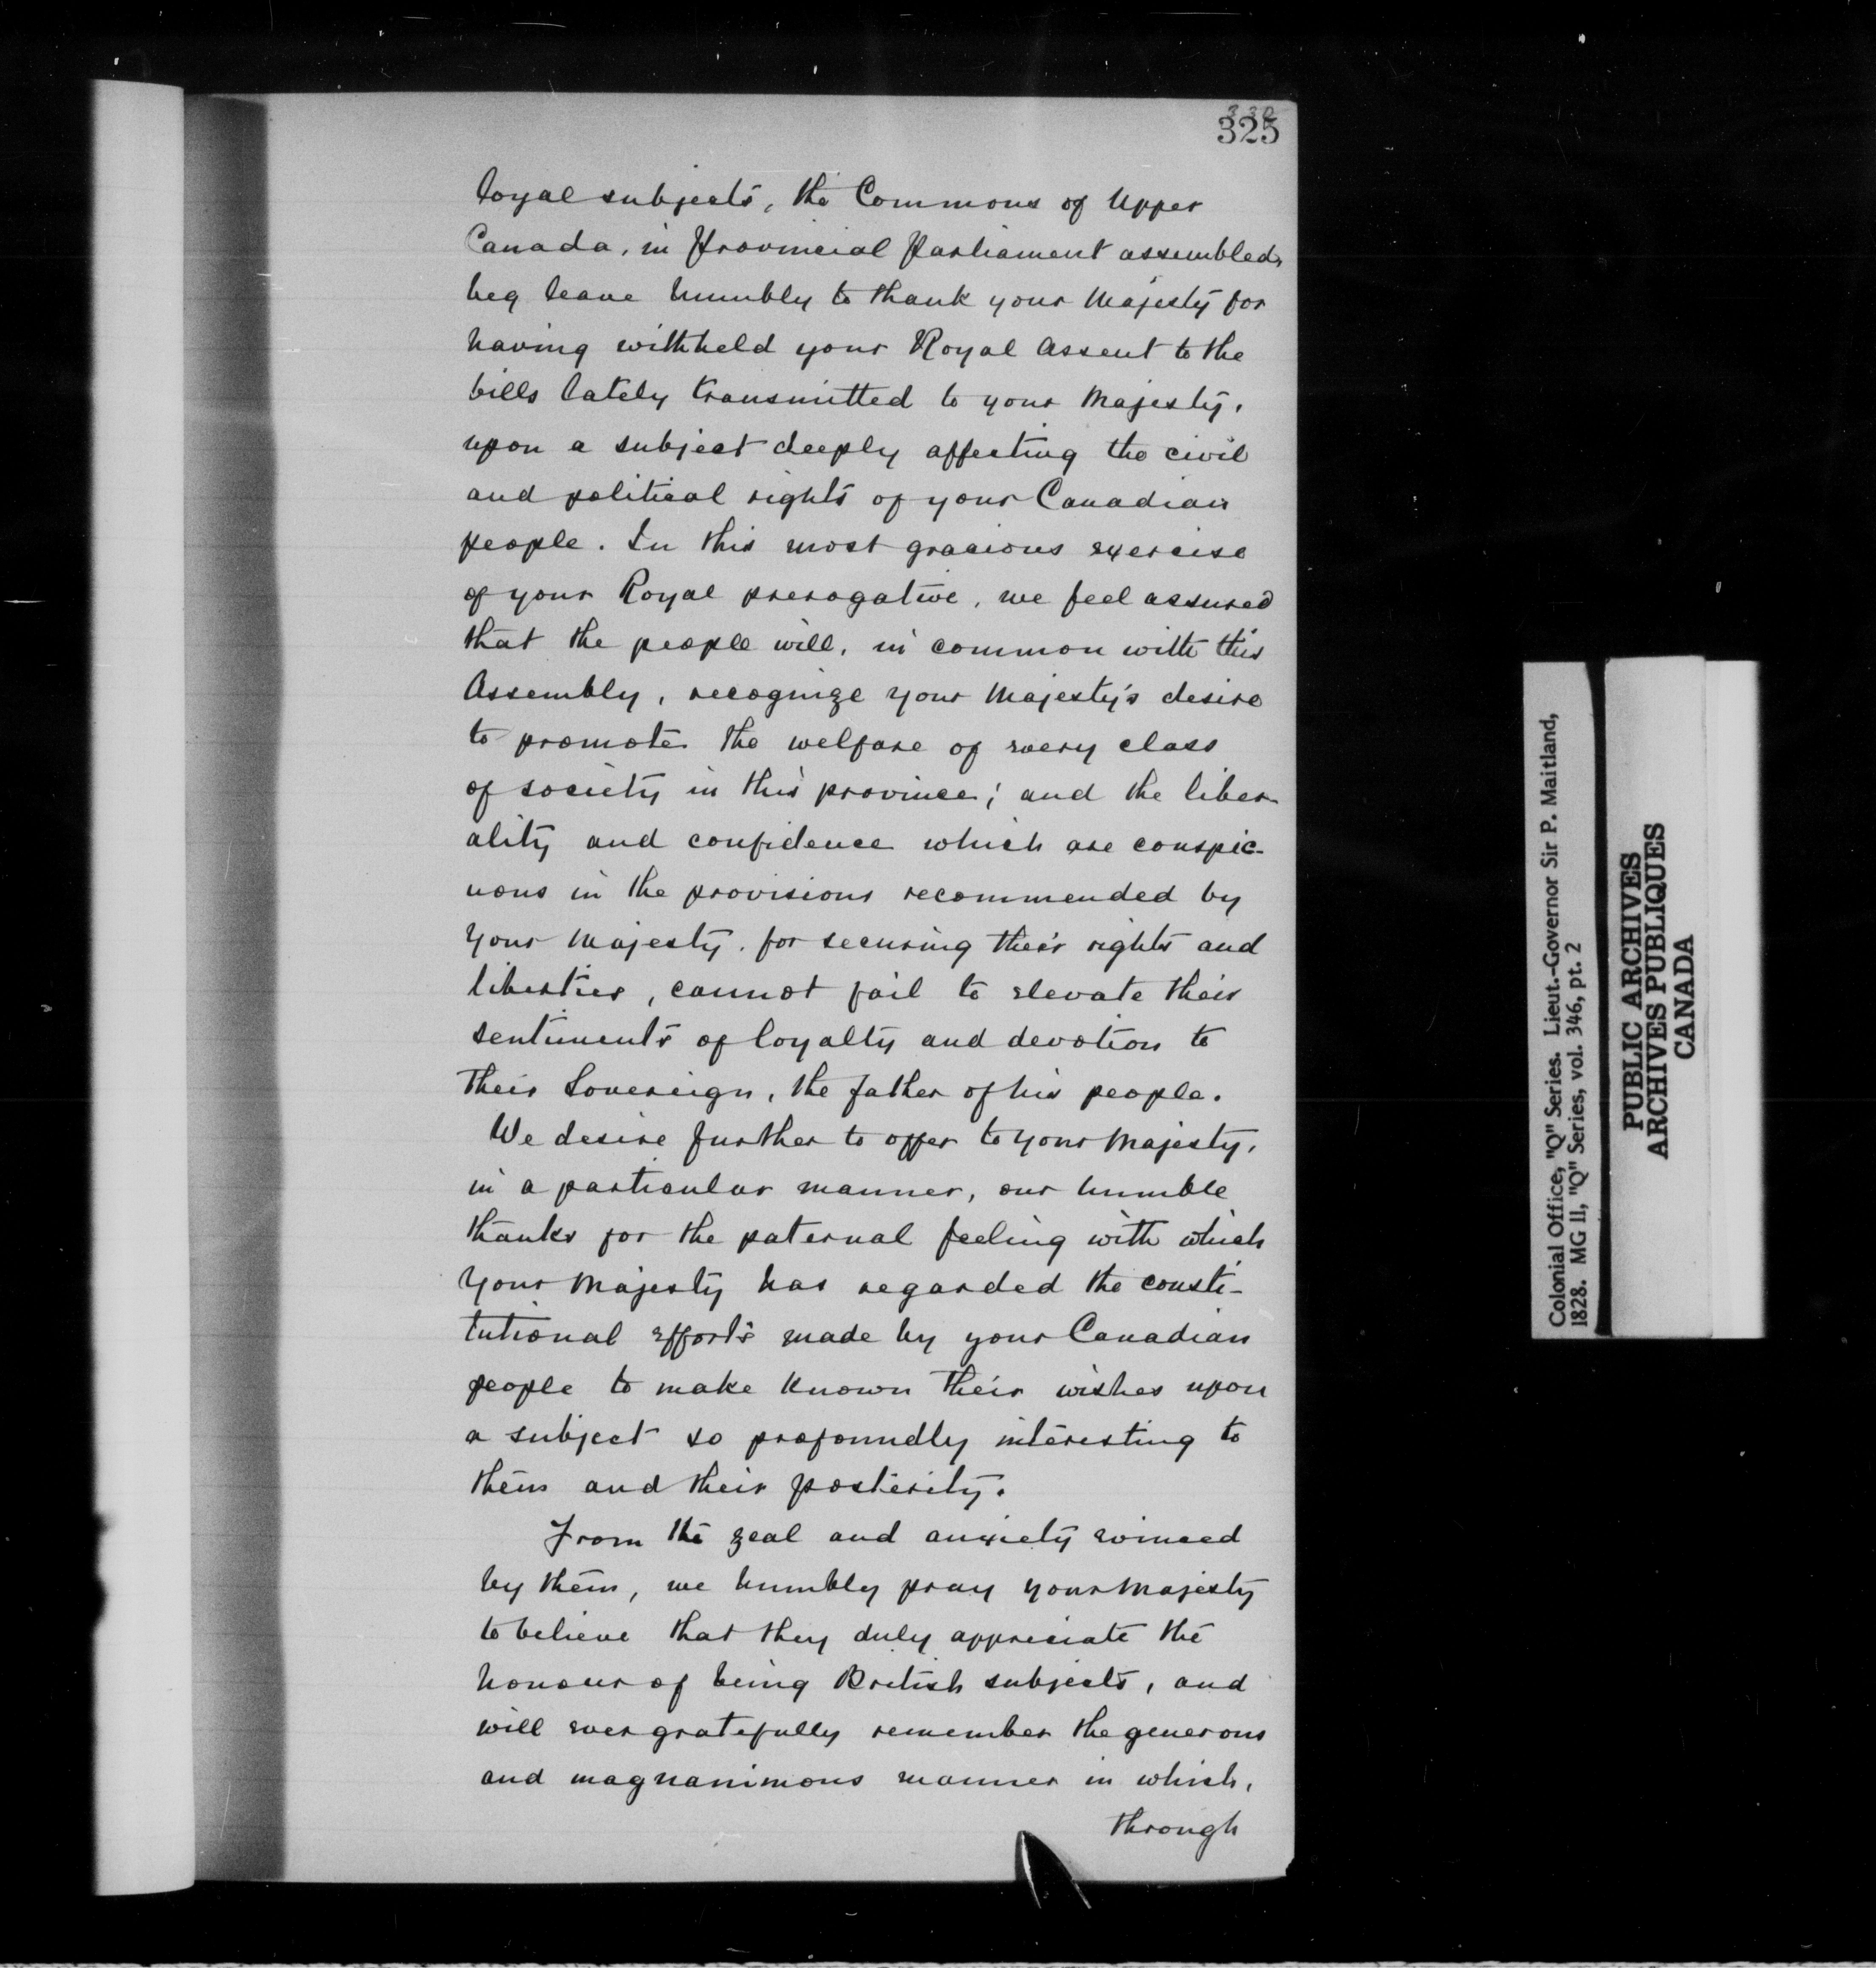 325
loyal subjects, the Commons of Upper
Canada, in Provincial Parliament assembled,
beg leave humbly to thank your Majesty for
having withheld your Royal Assent to the
bills lately transmitted to your Majesty,
upon a subject deeply affecting the civil
and political rights of your Canadian
people. In this most gracious exercise
of your Royal prerogative, we feel assured
that the people will, in common with this
Assembly, recognize your Majesty's desire
to promote the welfare of every class
of society in this province; and the liber-
ality and confidence which are conspic-
uous in the provisions recommended by
Your Majesty, for securing their rights and
liberties, cannot fail to elevate their
sentiments of loyalty and devotion to
their Sovereign, the father of his people.
We desire further to offer to your Majesty,
in a particular manner, our humble
thanks for the paternal feeling with which
Your Majesty has regarded the consti-
tutional efforts made by your Canadian
people to make known their wishes upon
a subject so profoundly interesting to
them and their posterity.
From the zeal and anxiety evinced
by them, we humbly pray your Majesty
to believe that they duly appreciate the
honour of being British subjects, and
will ever gratefully remember the generous
and magnanimous manner in which,
through
Colonial Office, "Q" Series. Lieut.-Governor Sir P. Maitland,
1828. MG 11, "Q" Series, vol. 346, pt. 2
PUBLIC ARCHIVES
ARCHIVES PUBLIQUES
CANADA